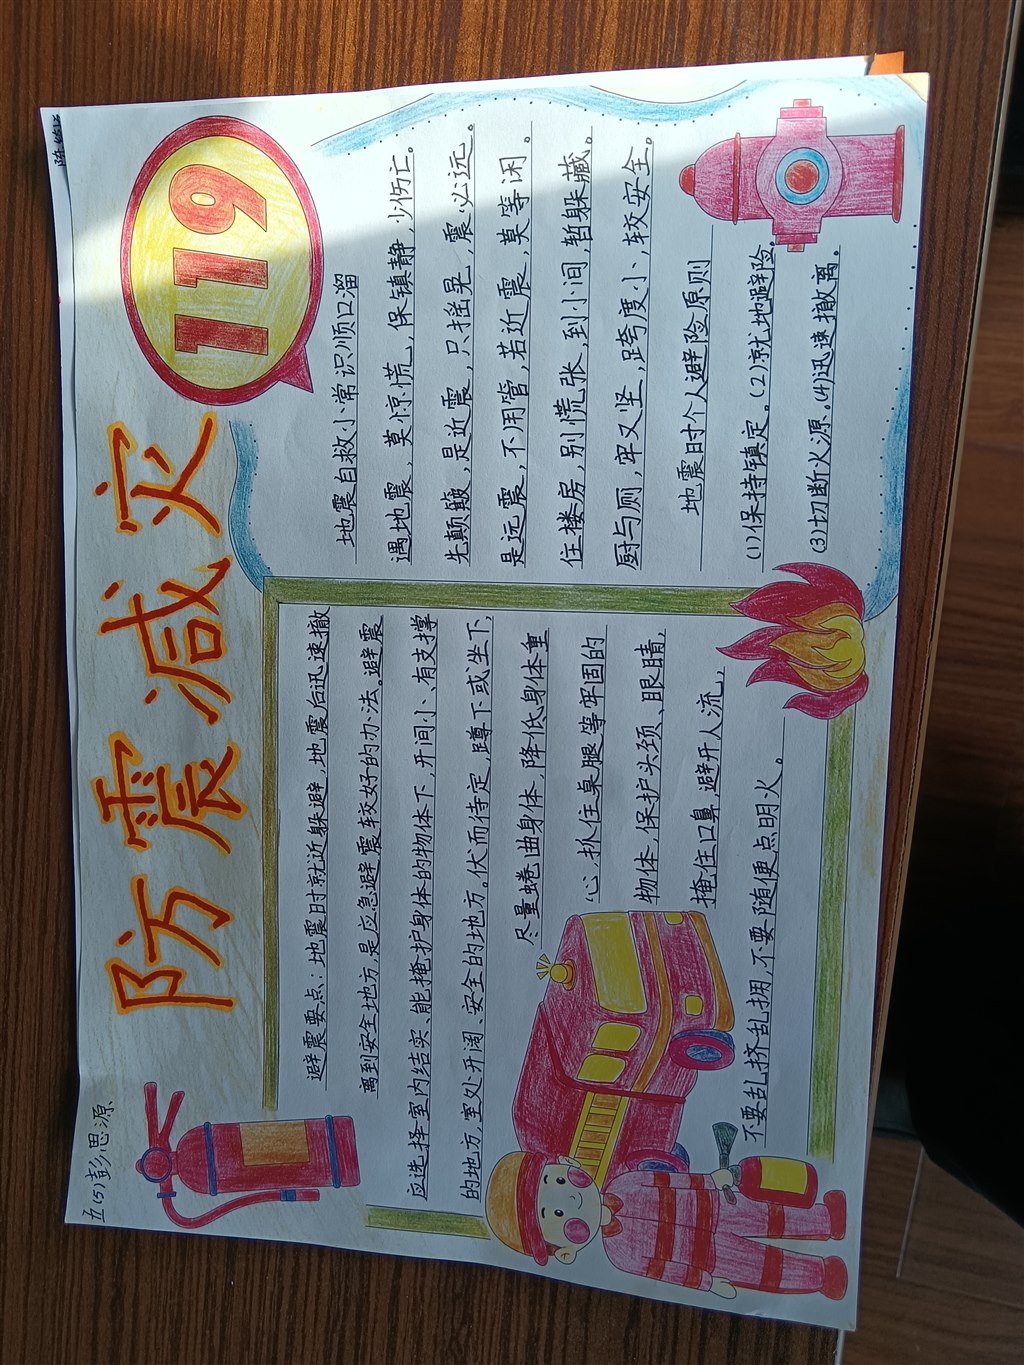 五(5)彭思源
防震减灾
119
避震要点:地震时就近躲避,地震后迅速撤
离到安全地方,是应急避震较好的办法。避震
应选择室内结实、能掩护身体的物体下,开间小、有支撑
的地方,室处开阔、安全的地方。伏而待定,蹲下或坐下,
尽量蜷曲身体,降低身体重
心,扒住桌腿等牢固的
物体,保护头颈、眼睛,
掩住口鼻,避开人流,,
不要乱挤乱拥,不要随便点明火。
地震自救小常识顺口溜
遇地震,莫惊慌,保镇静,少伤亡。
先颠簸,是近震,只摇晃,震必远。
是远震,不用管,若近震,莫等闲。
住楼房,别慌张,到小间,暂躲藏。
厨与厕,牢又坚,跨度小,较安全。
地震时个人避险原则
(1)保持镇定。(2)就地避险.
(3)切断火源.(4)迅速撤离.